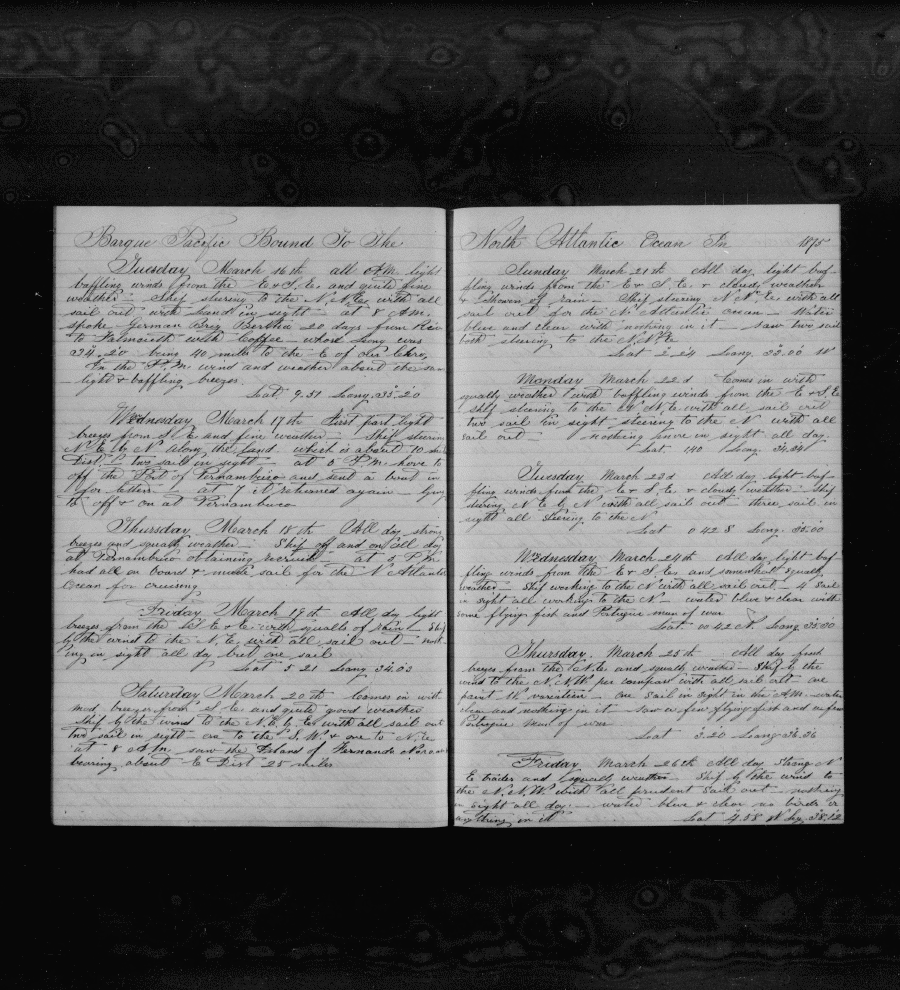 Barque Pacific Bound To The
Tuesday March 16th all A.M. light
baffling winds from the E & S.E. and quite fine
weather - Ship steering to the N.N.E. with all
sail out with land in sight - at 8 A.M.
spoke German Brig Bertha 20 days from
to Falmouth with Coffee whose Long was
34.20 being 40 miles to the E of our Chro.
In the P.M. wind and weather about the same
- light & baffling breezes.
Lat. 9.51 Long. 35.20
Wednesday March 17th First part light
breezes from S.E and fine weather - Ship steering
N.E. by N along the land which is about 10
Dist. - two sails in sight - at 3 P.M. hove to
off the Port of Pernambuco and sent a boat in
for letters - at 7 it returned again - lying
off & on at Pernambuco
Thursday March 18th All day strong
breezes and squally weather - Ship off and on all day
at Pernambuco obtaining recruit - at P.M.
had all on board & made sail for the N Atlantic
Ocean for cruising
Friday March 19th All day light
breezes from the S.E & E with squalls of rain - Ship
by the wind to the N.E. with all sail out - noth
ing in sight all day but one sail
Lat 5 21 Long 34.03
Saturday March 20th Comes in with
mod breezes from S.E and quite good weather
Ship by the wind to the N.E. by E with all sail out
two sail in sight one to the S.W & one to N.E
at 8 A.M. saw the Island of Fernando
bearing about E Dist 25 miles
North Atlantic Ocean In 1875
Sunday March 21st All day light baf-
fling winds from the E & S.E. & cloudy weather
& shower of rain - Ship steering N N E. with all
sail out for the N. Atlantic ocean - Water
blue and clear with nothing in it - saw two sail
both steering to the N.N.E
Lat 2.24 Long. 33.00 W
Monday March 22d Comes in with
squally weather with baffling winds from the E & S.E
ship steering to the N.N.E. with all sail out
two sail in sight steering to the N with all
sail out - nothing more in sight all day.
Lat 1.40 Long. 34.34
Tuesday March 23d All day light baf-
fling winds from the E & S.E. & cloudy weather - Ship
steering N.E. by N with all sail out - three sail in
sight all steering to the N
Lat 0 42 S Long. 35.00
Wednesday March 24th All day light baf
fling winds from the E & S.E. and somewhat squally
weather - Ship working to the N with all sail out - 4 Sail
in sight all working to the N - water blue & clear with
some flying fish and Potugue man of war
Lat. 00 42 N. Long 35.30
Thursday. March 25th All day fresh
breezes from the N.E. and squally weather - Ship by the
wind to the N.N.W per compass with all sail out - one
point W variation - one Sail in sight in the A.M. - water
clear and nothing in it - saw a few flying fish and a few
Portugue man of war
Lat 3.20 Long 36.36
Friday March 26th All day Strong N
E trades and squally weather - Ship by the wind to
the N.N.W with all prudent Sail out - nothing
in sight all day - water blue & clear no birds or
anything in it Lat 4.58 N Lg. 38.12